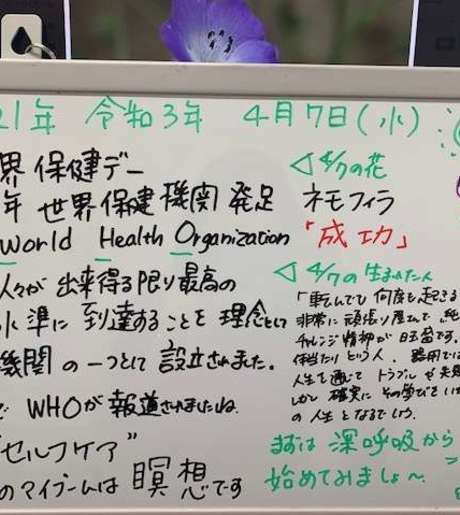 21年 令和3年 4月7日(水)
界保健デー
年 世界保健機関 発足
World Health Organization
人々が出来得る限り最高の
水準に到達することを理念として
機関の一つとして設立されました。
で WHOが報道されましたね
"セルフケア"
のマイブームは 瞑想です
4/7の花
ネモフィラ
「成功」
4/7の生まれた人
「転んでも何度も起きる
非常に頑張り屋さんで、純
チャレンジ精神が旺盛です。
体当たりという人。器用では
人生を通じて トラブルや失敗
しかし確実に その学びを
の人生となるでしょう。
まずは 深呼吸から
始めてみましょ〜